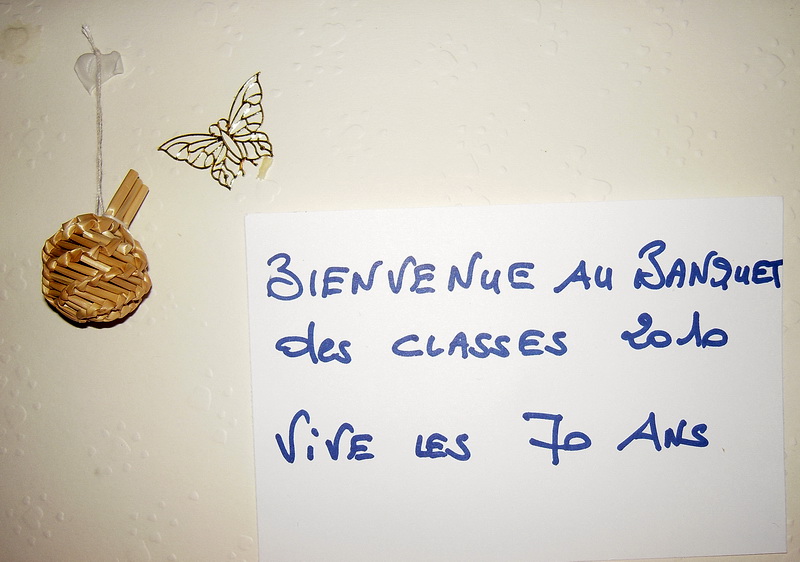 BIENVENUE AU BANQUET
des CLASSES 2010
ViVE LES 70 ANS